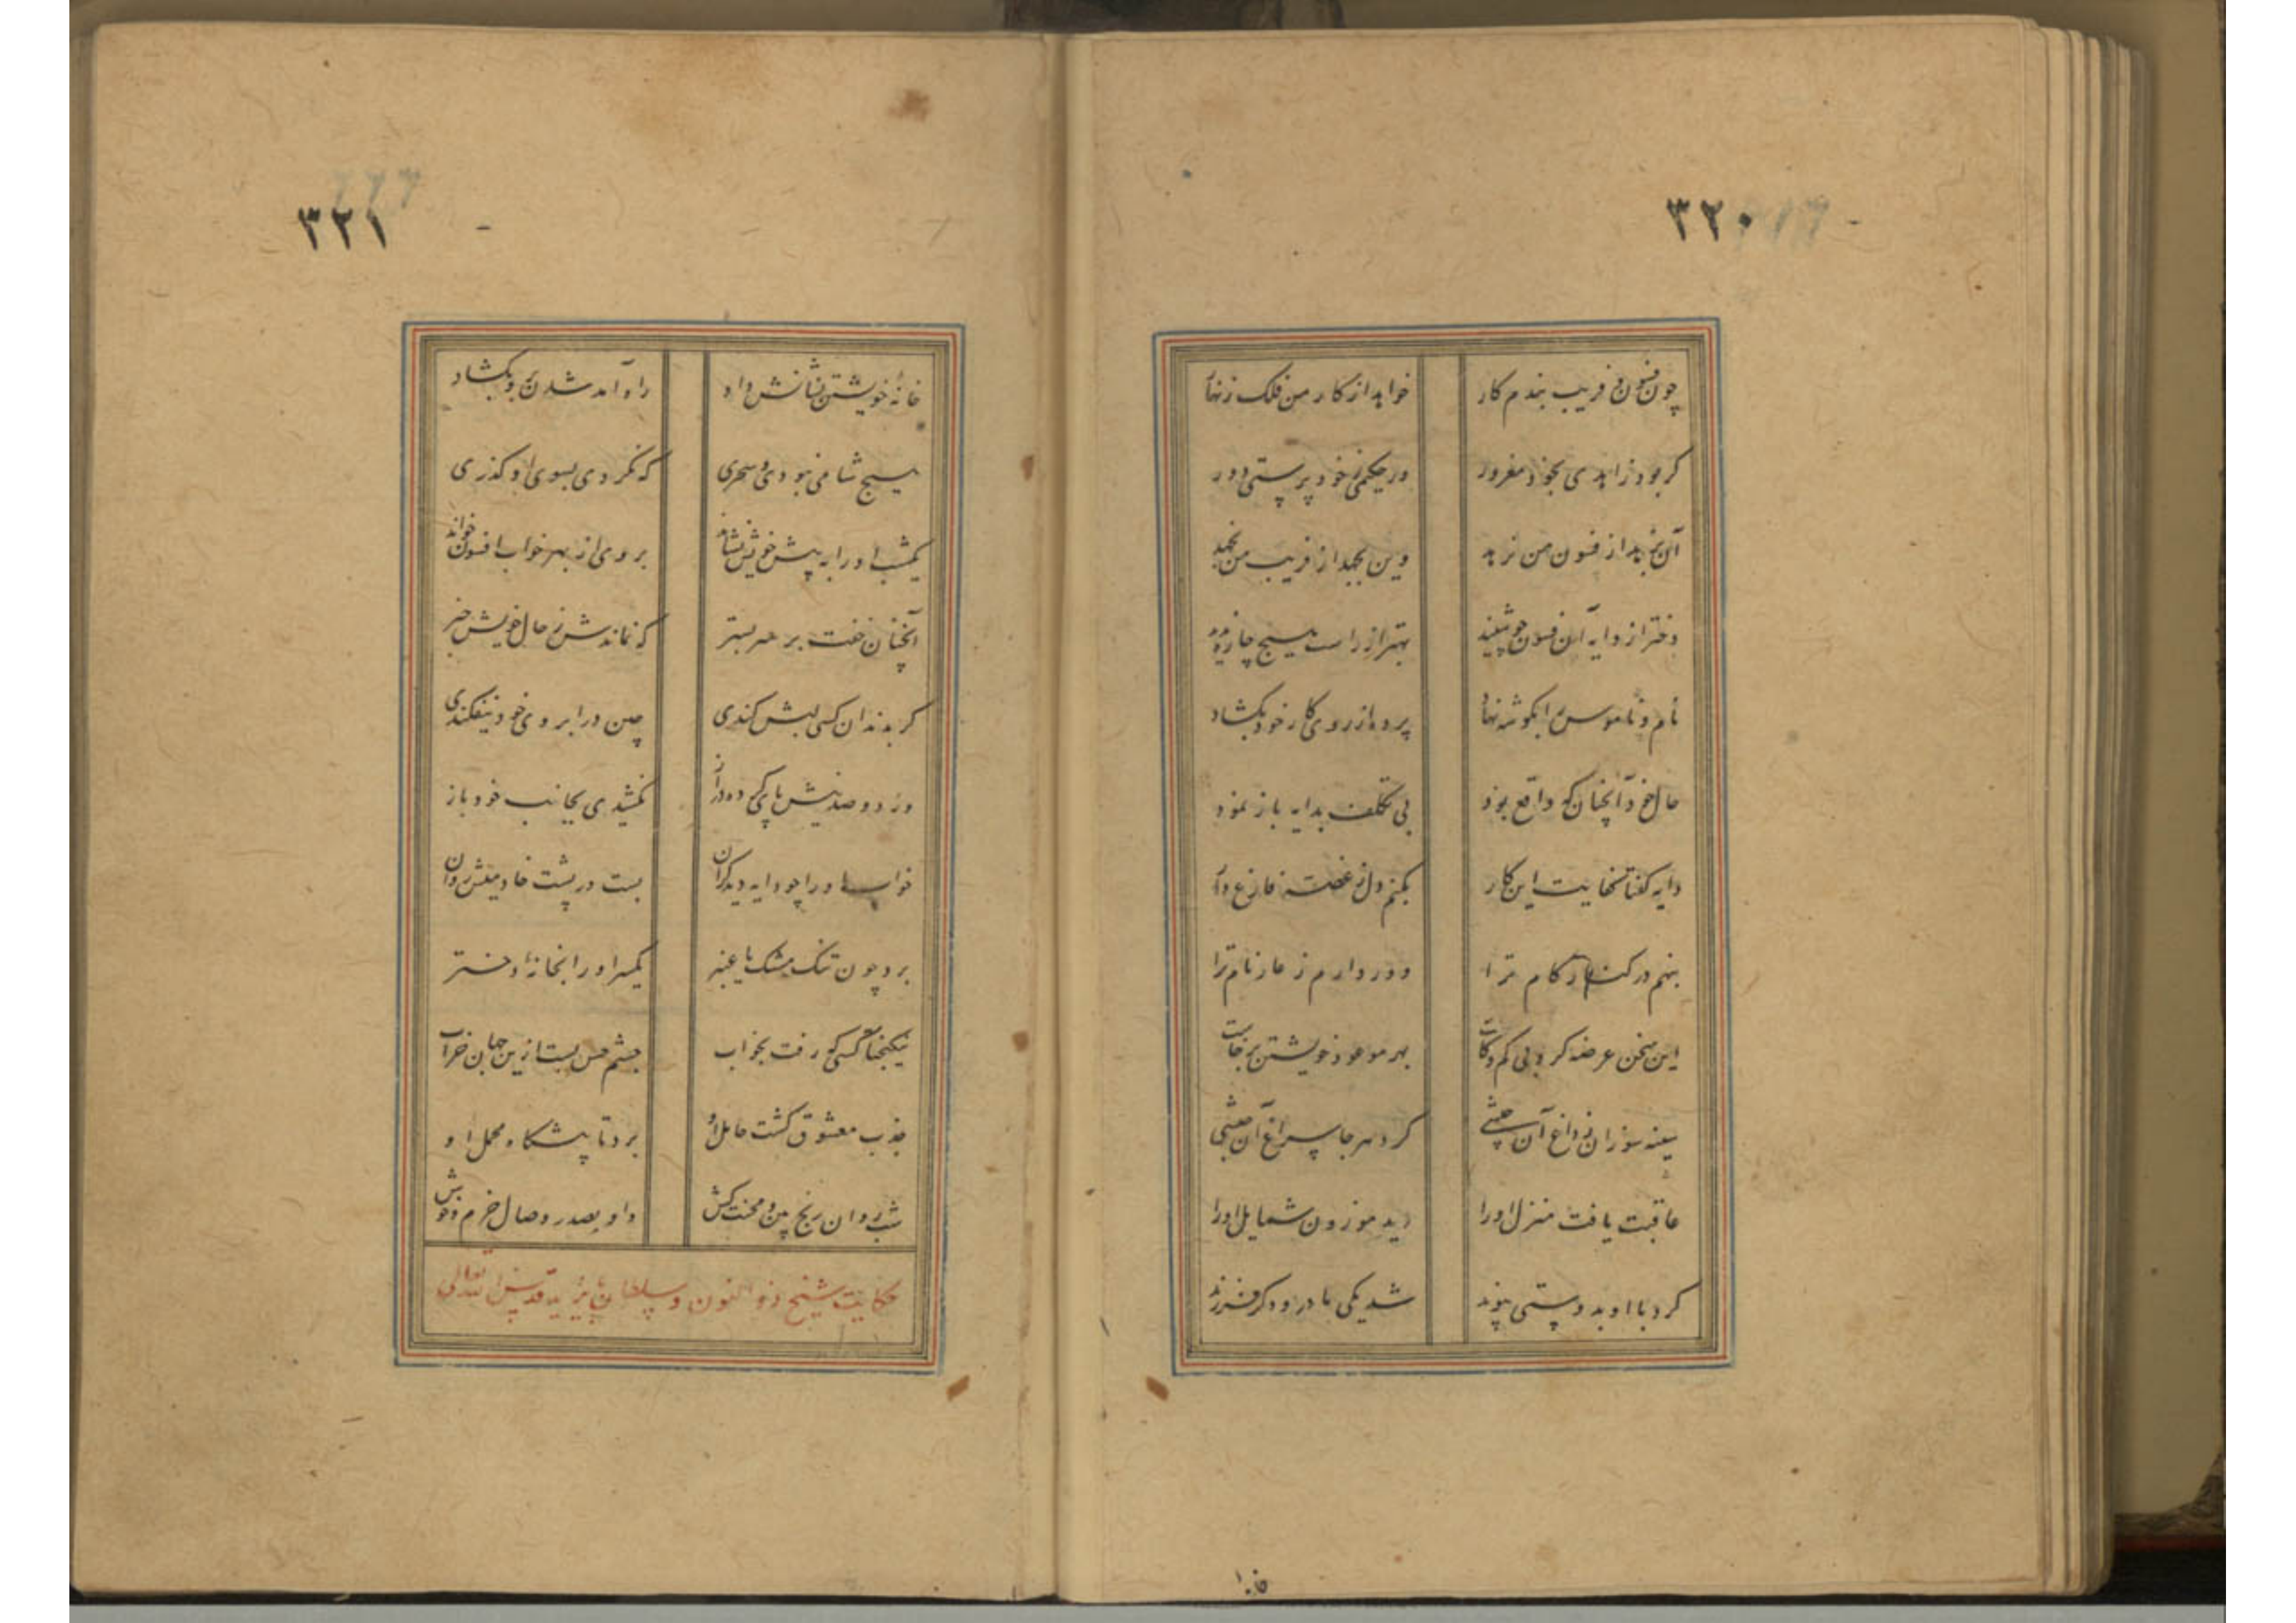 ۳۲۰
چون فسون و فریب بندم کار خواهد از کار من فلک زنهار
کر بود زاهدی بخود مغرور ور حکیمی ز خود پرستی دور
آن نرهد از فسون من نرهد وین بجهد از فریب من نجهد
دختر از دایه آن فسون چو شنید بهتر از راست هیچ چاره ندید
نام و ناموس را بکوشه نهاد پرده از روی کار خود بکشاد
حال خود آنچنان که واقع بود بی تکلف بدایه باز نمود
دایه کفتا سخایت این کار بکنم دل ز غصه فارغ دار
بنهم در کنار کام ترا دور دارم ز عار نام ترا
این سخن عرضه کرد بی کم و کاست بهر موعود خویشتن برخاست
سینه سوزان ز داغ آن حبشی کرد هر جا سراغ آن حبشی
عاقبت یافت منزل او را دید موزون شمایل او را
کرد با او بدوستی پیوند شد یکی مادر و دکر فرزند
۳۲۱
خانهٔ خویشتن نشانش داد راه آمد شدن برو بکشاد
هیچ شامی نبودی و سحری که نکردی بسوی او کذری
یکشب او را به پیش خویش نشاند بروی از بهر خواب افسون خواند
آنچنان خفت بر سر بستر که نماندش ز حال خویش خبر
کر بدندان کسی لبش کندی چین در ابروی خود نیفکندی
ور دو صد نیش پای کرده دراز نکشیدی بجانب خود باز
خواب او را چو دایه دید کران بست در پشت خادمیش روان
برد چون تنک مشک یا عنبر یکسر او را بخانهٔ دختر
نیکبختا کسی که رفت بخواب چشم حس بست ازین جهان خراب
جذب معشوق کشت حامل او برد تا پیشکاه محمل او
شب روان رنج بین و محنت کش داد بصدر وصال خرم و خوش
حکایت شیخ ذوالنون و سلطان بایزید قدس الله تعالی